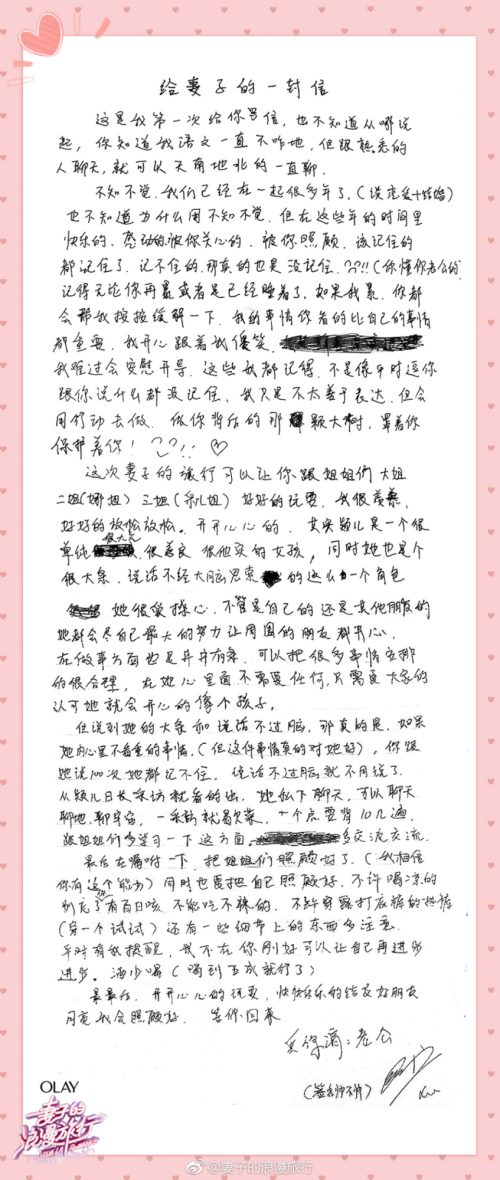 给妻子的一封信
这是我第一次给你写信，也不知道从哪说
起，你知道我语文一直不咋地，但跟熟悉的
人聊天，就可以天南地北的一直聊．
不知不觉，我们已经在一起很多年了，（谈恋爱+结婚）
也不知道为什么用不知不觉．但在这些年的时间里
快乐的．感动的被你关心的．被你照顾．该记住的
都记住了．记不住的，那真的也是没记住．??!!（你懂你老公的）
记得无论你再累或者是已经睡着了，如果我累．你都
会帮我按按缓解一下．我的事情你看的比自己的事情
都重要．我开心跟着我傻笑．
我难过会安慰开导．这些我都记得．不是像平时逗你
跟你说什么都没记住，我只是不太善于表达．但会
用行动去做．做你背后的那颗大树，罩着你
保护着你！??!! ♡
这次妻子的旅行可以让你跟姐姐们 大姐
二姐(娜姐) 三姐 好好的玩耍．我很羡慕．
好好的放松放松．开开心心的．其实颖儿是一个很
单纯 很善良 很他实的女孩，同时她也是个
很大条．说话不经大脑思索的这么一个角色
她很爱操心．不管是自己的还是其他朋友的
她都会尽自己最大的努力让周围的朋友都开心．
在做事方面也是井井有条．可以把很多事情安排
的很合理，在她心里面不需要任何，只需要大家的
认可她就会开心的像个孩子．
但说到她的大条和说话不过脑．那真的是．如果
她内心里不看重的事情．（但这件事情真的对她好），你跟
她说100次她都记不住．说话不过脑就不用说了．
从颖儿日长采访就看的出．她私下聊天，可以聊天
聊地．聊宇宙，一采访就
跟姐姐们多学习一下这方面．多交流交流．
最后在嘱咐一下．把姐姐们照顾好了．（我相信
你有这个能力）同时也要把自己照顾好．不许喝凉的
别忘了有百日咳．不能吃不辣的．不许穿露打底裤的热裤
（穿一个试试）还有一些细节上的东西多注意．
平时有我提醒，我不在你刚好可以让自己再进步
进步．酒少喝（喝到五成就行了）
最最后．开开心心的玩耍，快快乐乐的结交好朋友
我会照顾好．等你回来
老公
OLAY
妻子的
浪漫旅行
@妻子的浪漫旅行